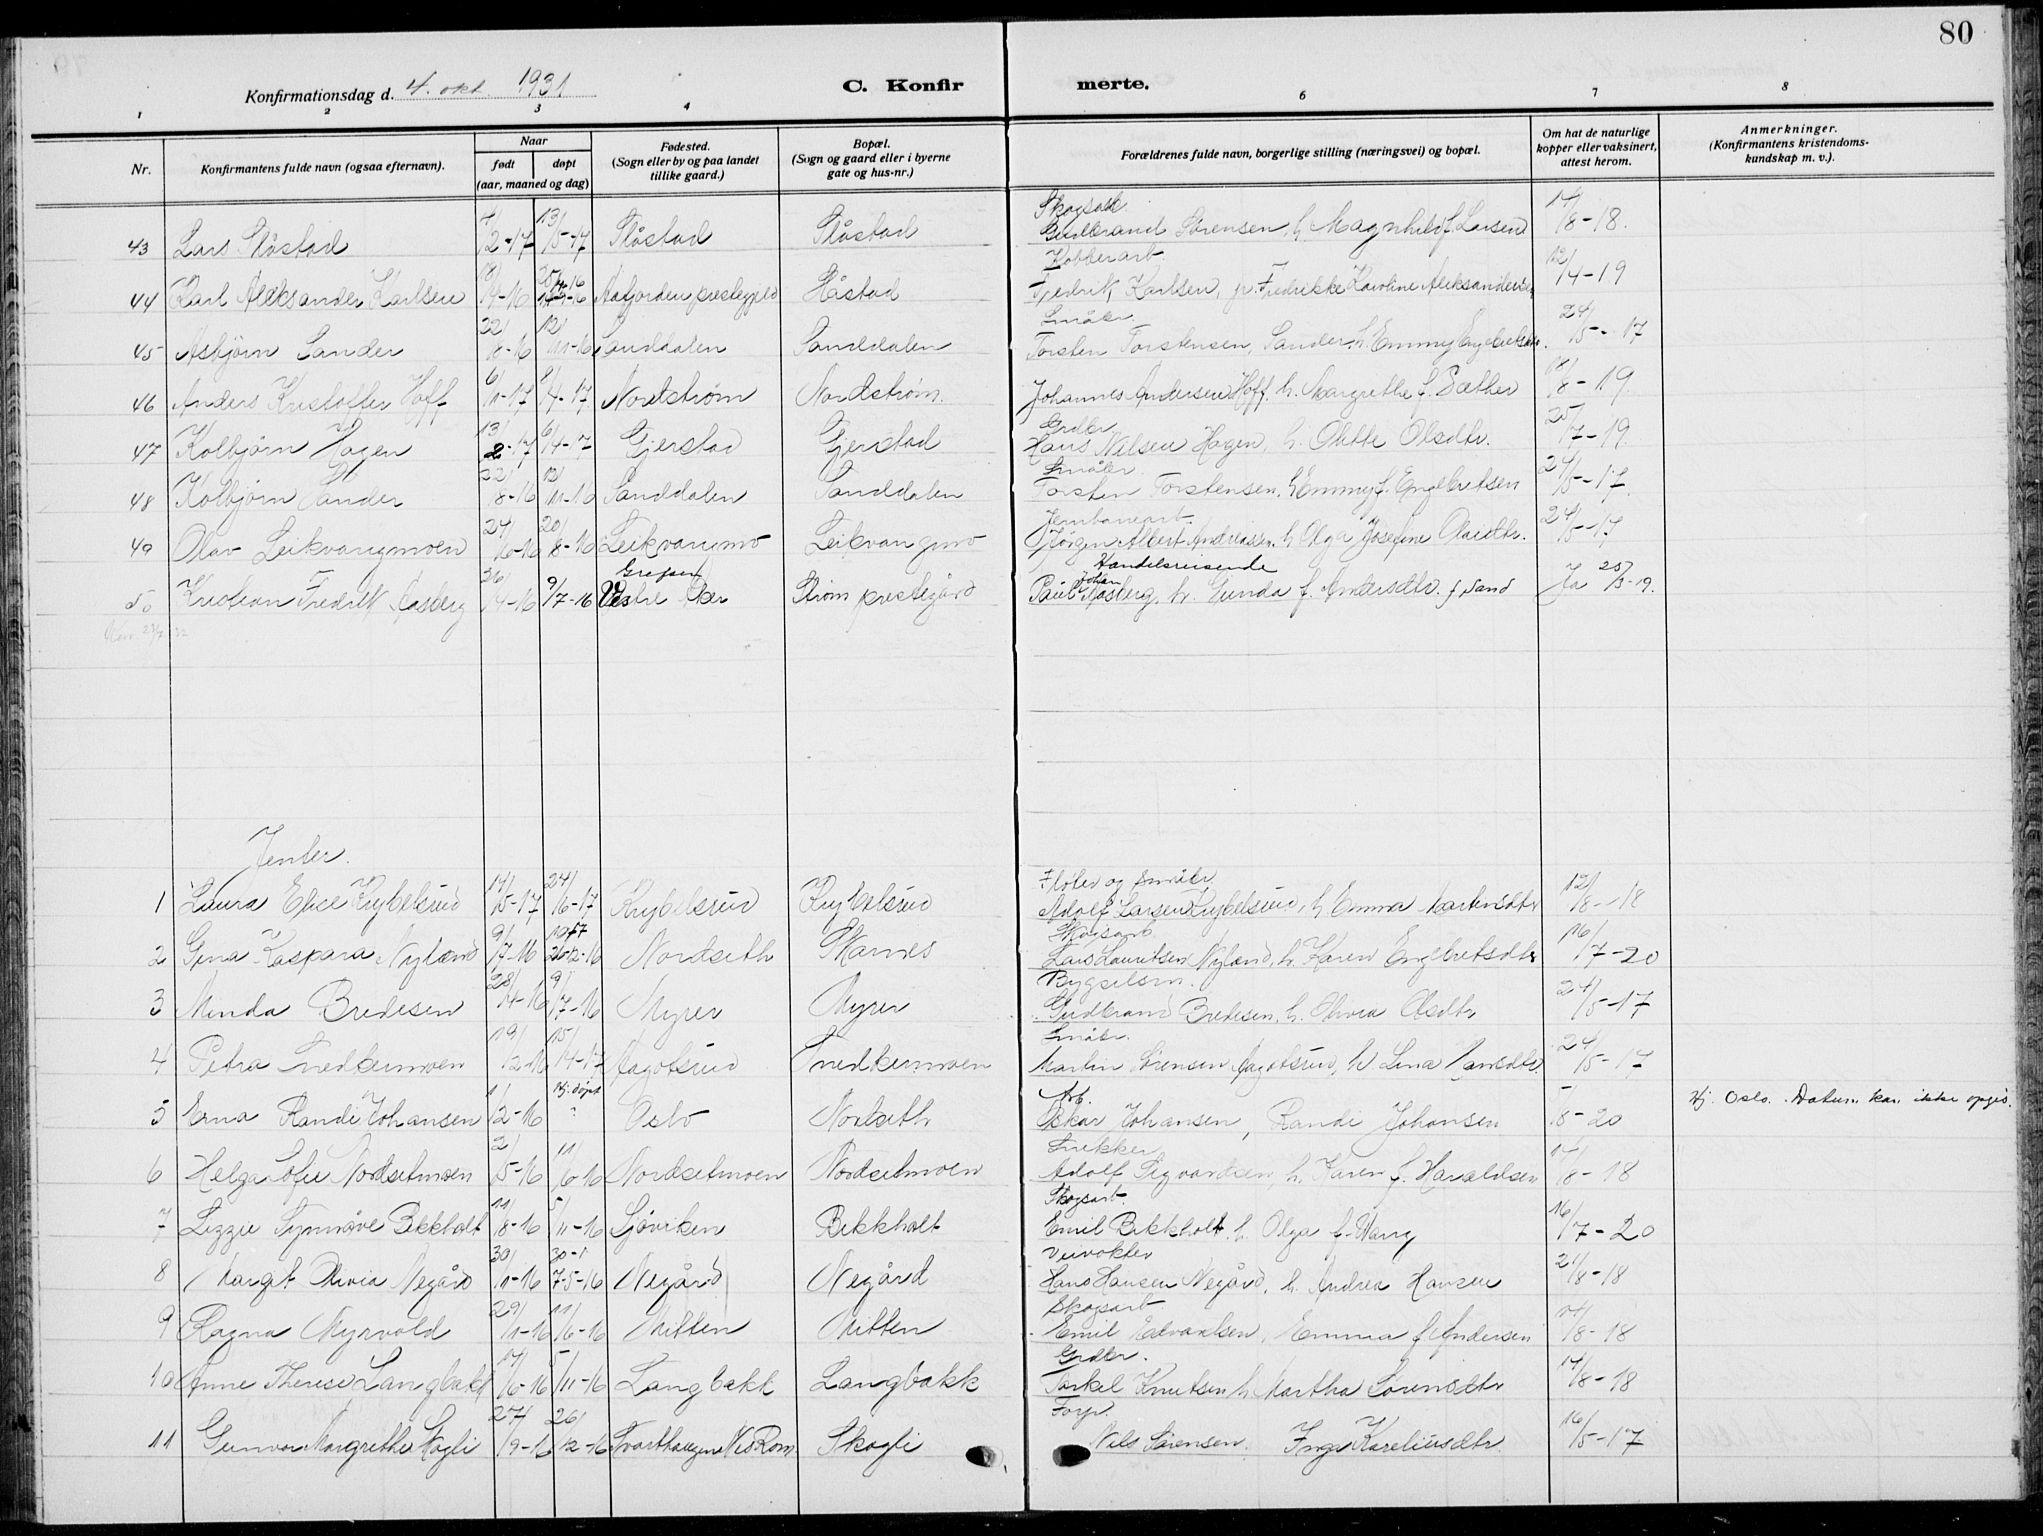 80
Konfirmationsdag d. 4. okt. 1931
C. Konfirmerte.
1 2 3 4 6 7 8
Nr.
Konfirmantens fulde navn (ogsaa efternavn).
Naar
født døpt
(aar, maaned og dag)
Fødested.
(Sogn eller by og paa landet
tillike gaard.)
Bopæl.
(Sogn og gaard eller i byerne
gate og hus-nr.)
Forældrenes fulde navn, borgerlige stilling (næringsvei) og bopæl.
Om hat de naturlige
kopper eller vaksinert,
attest herom.
Anmerkninger.
(Konfirmantens kristendoms-
kundskap m. v.).
Skogsarb.
43 Lars Råstad 7/2-17 13/5-17 Råstad Råstad Gudbrand Sørensen, h. Magnhild f. Larsen /8-18.
Kobberarb.
44 Karl Aleksander Karlsen 18/4-16 Aafjorden prestegjeld Håstad Fredrik Karlsen, Fredrikke Karoline Aleksandersen 12/4-19
Småbr.
45 Asbjørn Sander 22/8-16 12/11-16 Sanddalen Sanddalen Torsten Torstensen, Sander, h. Emmy Engebretsen. 24/5-17
46 Anders Kristoffer Hoff 6/1-17 8/4-17 Nordstrøm Nordstrøm. Johannes Andersen Hoff, h. Margrethe f. Sæther 18/8-19
Grdbr.
47 Kolbjørn Hagen 13/2-17 6/4-17 Gjerstad Gjerstad Hans Nilsen Hagen, h. Olette Olsdtr. 25/7-19
Småbr.
48 Kolbjørn Sander 22/8-16 12/11-16 Sanddalen Sanddalen Torsten Torstensen, h. Emmy f. Engebretsen 24/5-17.
Jernbanearb.
49 Olav Leikvangmoen 24/6-16 20/8-16 Leikvangmo Leikvangmo Jørgen Albert Andreassen, h. Olga Josefine Olsdtr. 24/5-17
Grefsen Handelsreisende
50 Kristian Fredrik Aasberg 26/4-16 9/7-16 Vestre Aker Strøm prestegård Paul Johan Aasberg, h. Gunda f. Andersdtr. f Sand Ja 25/3-19.
Jenter.
Fløter og småbr.
1 Laura Elise Krybelsrud 14/5-17 24/6-17 Krybelsrud Krybelsrud Adolf Larsen Krybelsrud, h. Emma Martinsdtr 12/8-18
Skogsarb.
2 Gina Kaspara Nyland 9/7-16 26-12-16 Nordseth Skarnes Lars Lauritsen Nyland, h. Karen Engebretsdtr 16/7-20
Bygselsm.
3 Minda Bredesen 28/4-16 9/7-16 Myrer Myrer Gudbrand Bredesen, h. Olivia Olsdtr 24/5-17
Småbr.
4 Petra Snedkermoen 19/12-16 15/4-17 Aagotsrud Snedkermoen Martin Sørensen Aagotsrud, h. Lina Hansdtr. 24/5-17
Arb.
5 Erna Randi Johansen 1/2-16 Hj. døpt Oslo Nordseth Oskar Johansen, Randi Johansen 18-20 Hj. Oslo. Datum kan ikke opgis.
Snekker
6 Helga Sofie Nordsetmoen 2/5-16 11/6-16 Nordsetmoen Nordsetmoen Adolf Sigvardsen, h. Karen f. Haraldsen /8-18
Skogsarb.
7 Lizzie Synnøve Bekkholt 11/8-16 5/11-16 Sjøviken Bekkholt Emil Bekkholt, h. Olga f. Wang 16/7-20
Veivokter
8 Margit Olivia Negård 30/1-16 7-5-16 Negård Negård Hans Hansen Negård, h. Andrea Hansen 21/8-18
Skogsarb
9 Ragna Myrvold 29/1-16 11/6-16 Mitten Mitten Emil Edvardsen, Emma f. Andersen 14/8-18
Grdbr.
10 Anne Therese Langbakk 14/6-16 5/11-16 Langbakk Langbakk Torkel Knutsen h. Martha Sørensdtr 14/8-18
Forp.
11 Gunvor Margrethe Skogli 27/9-16 26/12-16 Svarthaugen Nes Rom. Skogli Nils Sørensen. Inga Kareliusdtr. 16/5-17